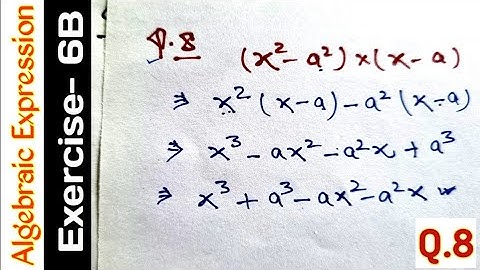 Algebraic Expression
Exercise- 6B
Q.8
(x² - a²) × (x - a)
⇒ x² (x - a) - a² (x - a)
⇒ x³ - ax² - a²x + a³
⇒ x³ + a³ - ax² - a²x
Q.8